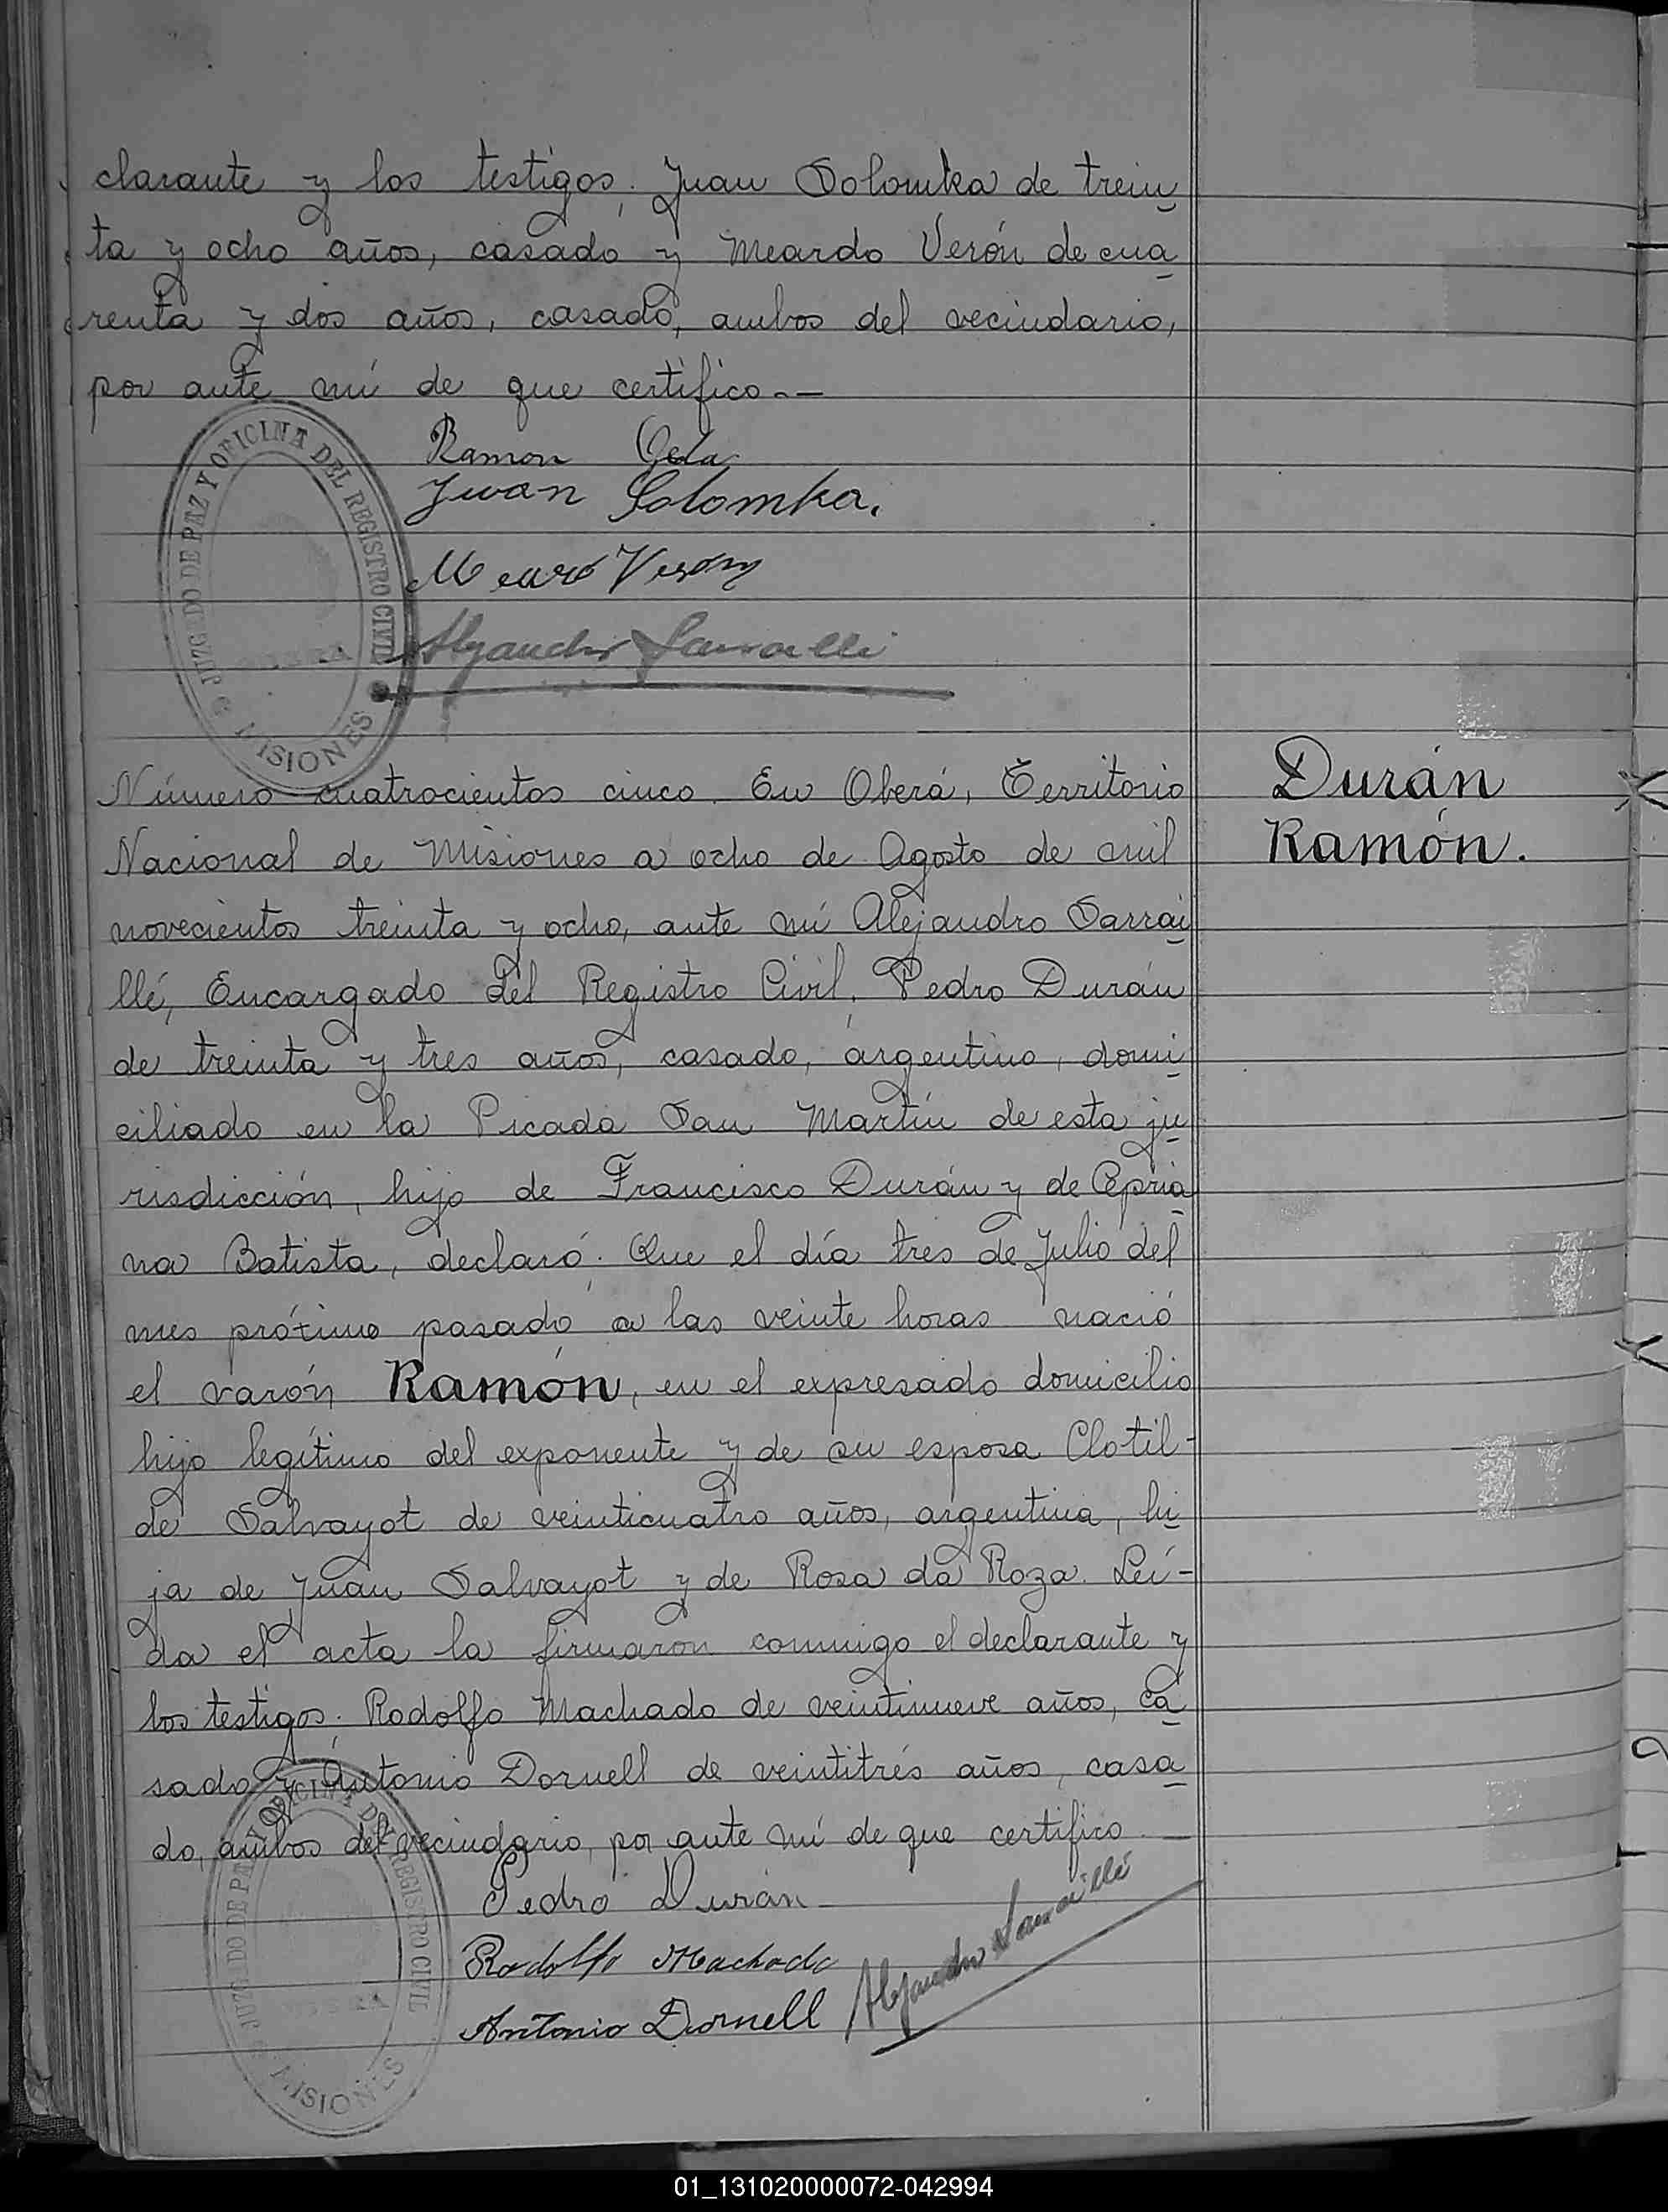 clarante y los testigos: Juan Solomka de trein
ta y ocho años, casado y Meardo Verón de cua
renta y dos años, casado, ambos del vecindario,
por ante mí de que certifico.—
Ramon
Juan Solomka.
Verón
Alejandro Sarraillé
JUZGADO DE PAZ Y OFICINA DEL REGISTRO CIVIL
MISIONES
Número cuatrocientos cinco. En Oberá, Territorio
Durán
Nacional de Misiones a ocho de Agosto de mil
Ramón.
novecientos treinta y ocho, ante mí Alejandro Sarrai
llé, Encargado del Registro Civil, Pedro Durán
de treinta y tres años, casado, argentino, domi
ciliado en la Picada San Martín de esta ju
risdicción, hijo de Francisco Durán y de Cipria
na Batista, declaró: Que el día tres de Julio del
mes próximo pasado a las veinte horas nació
el varón Ramón, en el expresado domicilio
hijo legítimo del exponente y de su esposa Clotil-
de Salvayot de veinticuatro años, argentina, hi
ja de Juan Salvayot y de Rosa da Roza. Leí-
da el acta la firmaron conmigo el declarante y
los testigos: Rodolfo Machado de veintinueve años, ca
sado y Antonio Dornell de veintitrés años, casa
do, ambos del vecindario, por ante mí de que certifico.—
Pedro Durán
Rodolfo Machado
Alejandro Sarraillé
Antonio Dornell
JUZGADO DE PAZ Y OFICINA DEL REGISTRO CIVIL
MISIONES
01_131020000072-042994